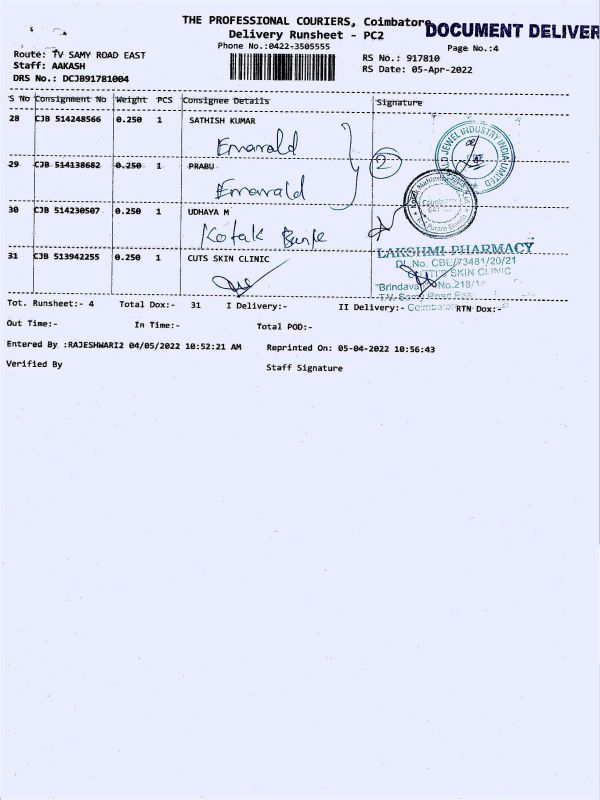 THE PROFESSIONAL COURIERS, Coimbatore
DOCUMENT DELIVER
Delivery Runsheet - PC2
Phone No.:0422-3505555
Page No.:4
Route: TV SAMY ROAD EAST
RS No.: 917810
Staff: AAKASH
RS Date: 05-Apr-2022
DRS No.: DCJB91781004
S No Consignment No Weight PCS Consignee Details Signature
28 CJB 514248566 0.250 1 SATHISH KUMAR
Emarald
29 CJB 514138682 0.250 1 PRABU
2
Emarald
30 CJB 514230507 0.250 1 UDHAYA M
Kotak Bank
31 CJB 513942255 0.250 1 CUTS SKIN CLINIC
JEWEL INDUSTRY INDIA LIMITED
LAKSHMI PHARMACY
DL No. CBE/73481/20/21
SKIN CLINIC
No.218/1
Tot. Runsheet:- 4 Total Dox:- 31 I Delivery:- II Delivery:- RTN Dox:-
Out Time:- In Time:- Total POD:-
Entered By :RAJESHWARI2 04/05/2022 10:52:21 AM Reprinted On: 05-04-2022 10:56:43
Verified By Staff Signature